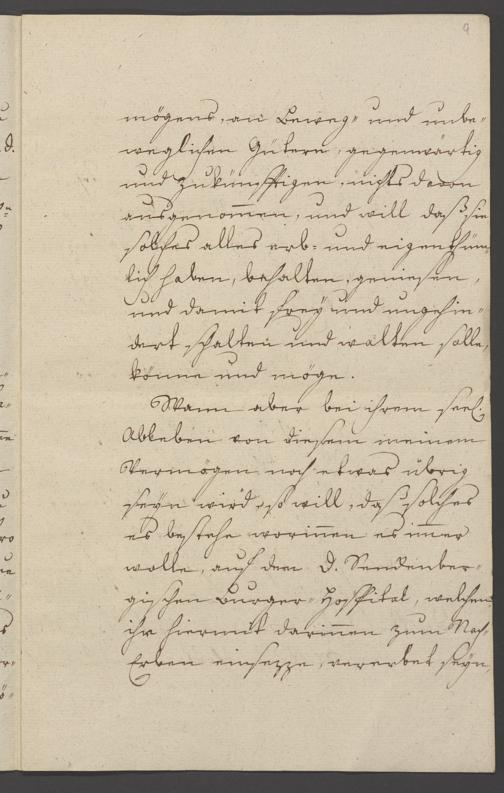 9
mögens, an Beweg- und unbe-
weglichen Gütern, gegenwärtig
und zukünfftigen, nichts davon
ausgenom̅en, und will daß sie
solches alles erb- und eigenthüm
lich haben, behalten, geniesen,
und damit frey und ungehin-
dert schalten und walten solle,
könne und möge.
Wann aber bei ihrem seel.
Ableben von diesem meinem
Vermögen noch etwas übrig
seyn wird, so will, daß solches
es bestehe worin̅en es im̅er
wolle, auf den D. Senckenber-
gischen Burger-Hospital, welchen
ich hiermit darin̅en zum Nach
Erben einsezze, vererbet seyn,